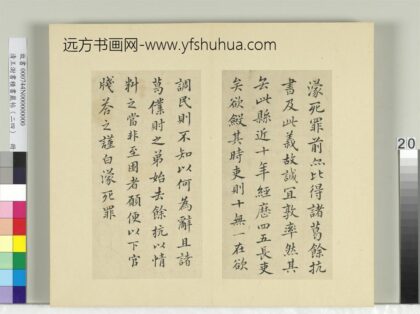 远方书画网-www.yfshuhua.com
濛死罪前亦比得諸葛餘抗
書及此義故誠宜敦率然其
去此縣近十年經歷四五長吏
矣欲殿其時吏則十無一在欲
調民則不知以何為辭且諸
葛僕時之弟始去餘抗以情
料之當非至困者願便以下官
牋荅之謹白濛死罪
20